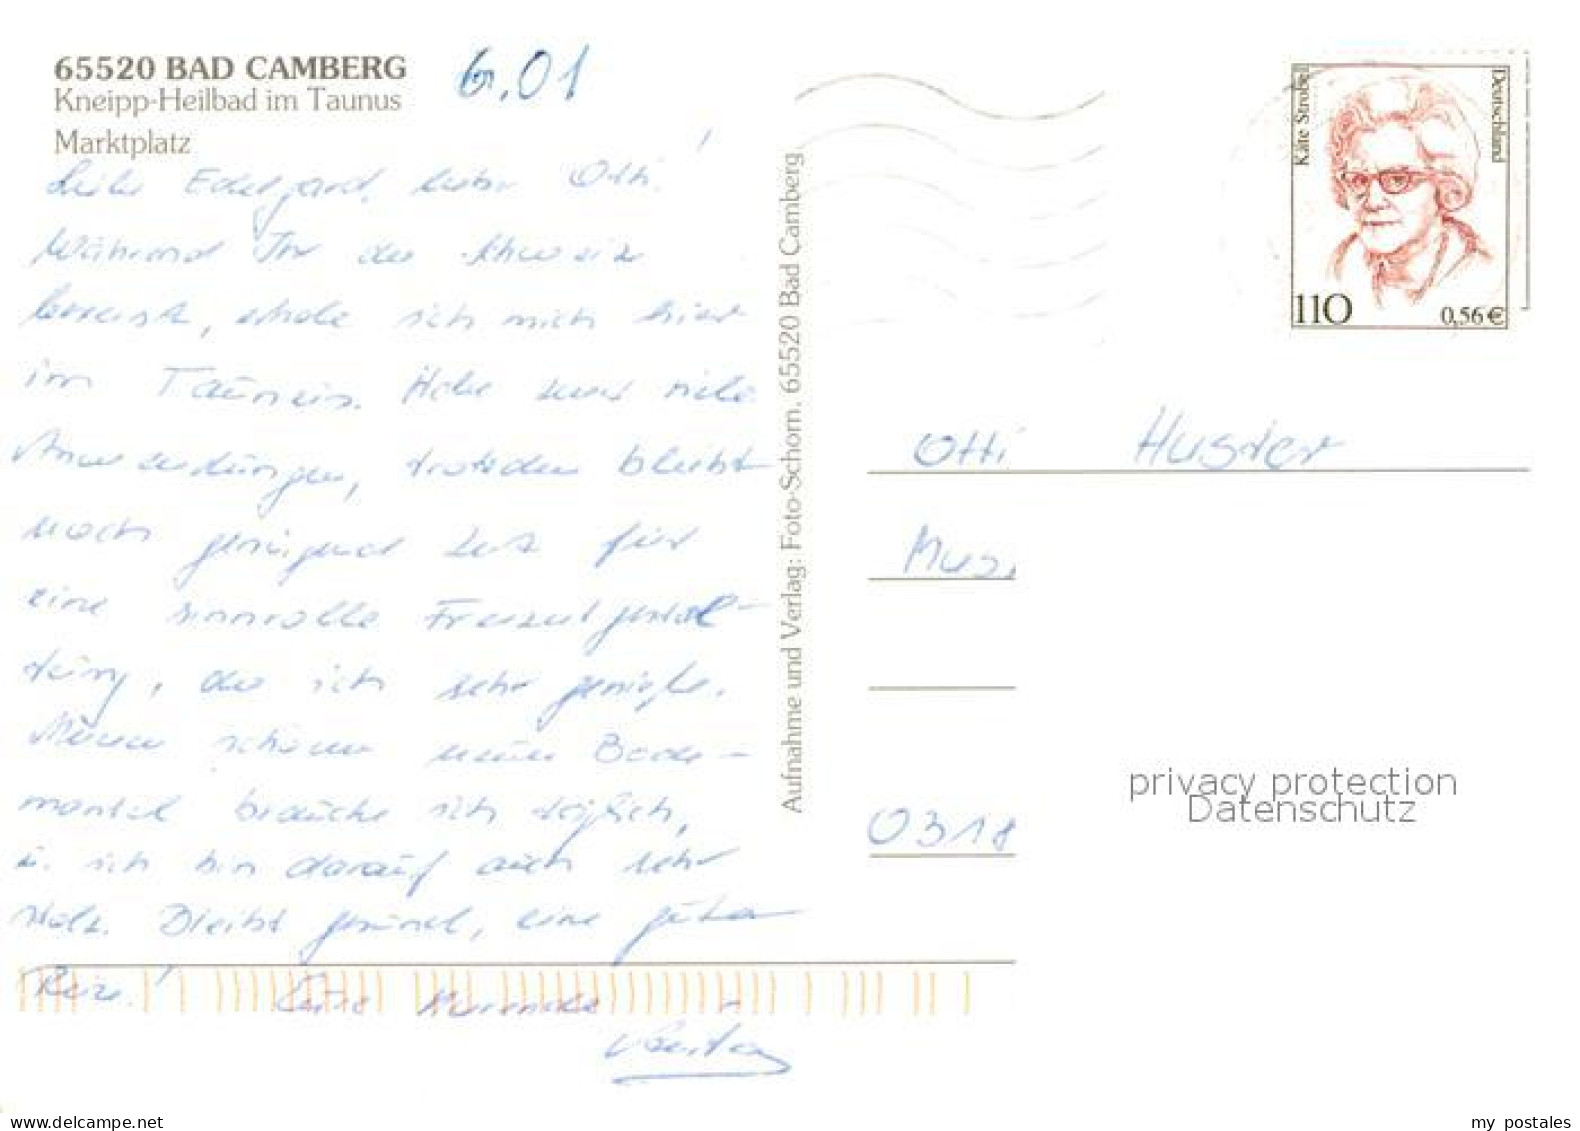 65520 BAD CAMBERG
Kneipp-Heilbad im Taunus
Marktplatz
6.01
Liebe Edelgard, lieber Otti!
Während Ihr die Schweiz
bereist, erhole ich mich hier
im Taunus. Habe zwar viele
Anwendungen, trotzdem bleibt
noch genügend Zeit für
eine sinnvolle Freizeitgestal-
tung, die ich sehr genieße.
Meinen schönen neuen Bade-
mantel brauche ich täglich,
u. ich bin darauf auch sehr
stolz. Bleibt gesund, eine gute
Reise! Eure
Aufnahme und Verlag: Foto-Schorn, 65520 Bad Camberg
Käte Strobel
Deutschland
110
0,56€
Otti Huster
Mus
0318
privacy protection
Datenschutz
my postales
www.delcampe.net